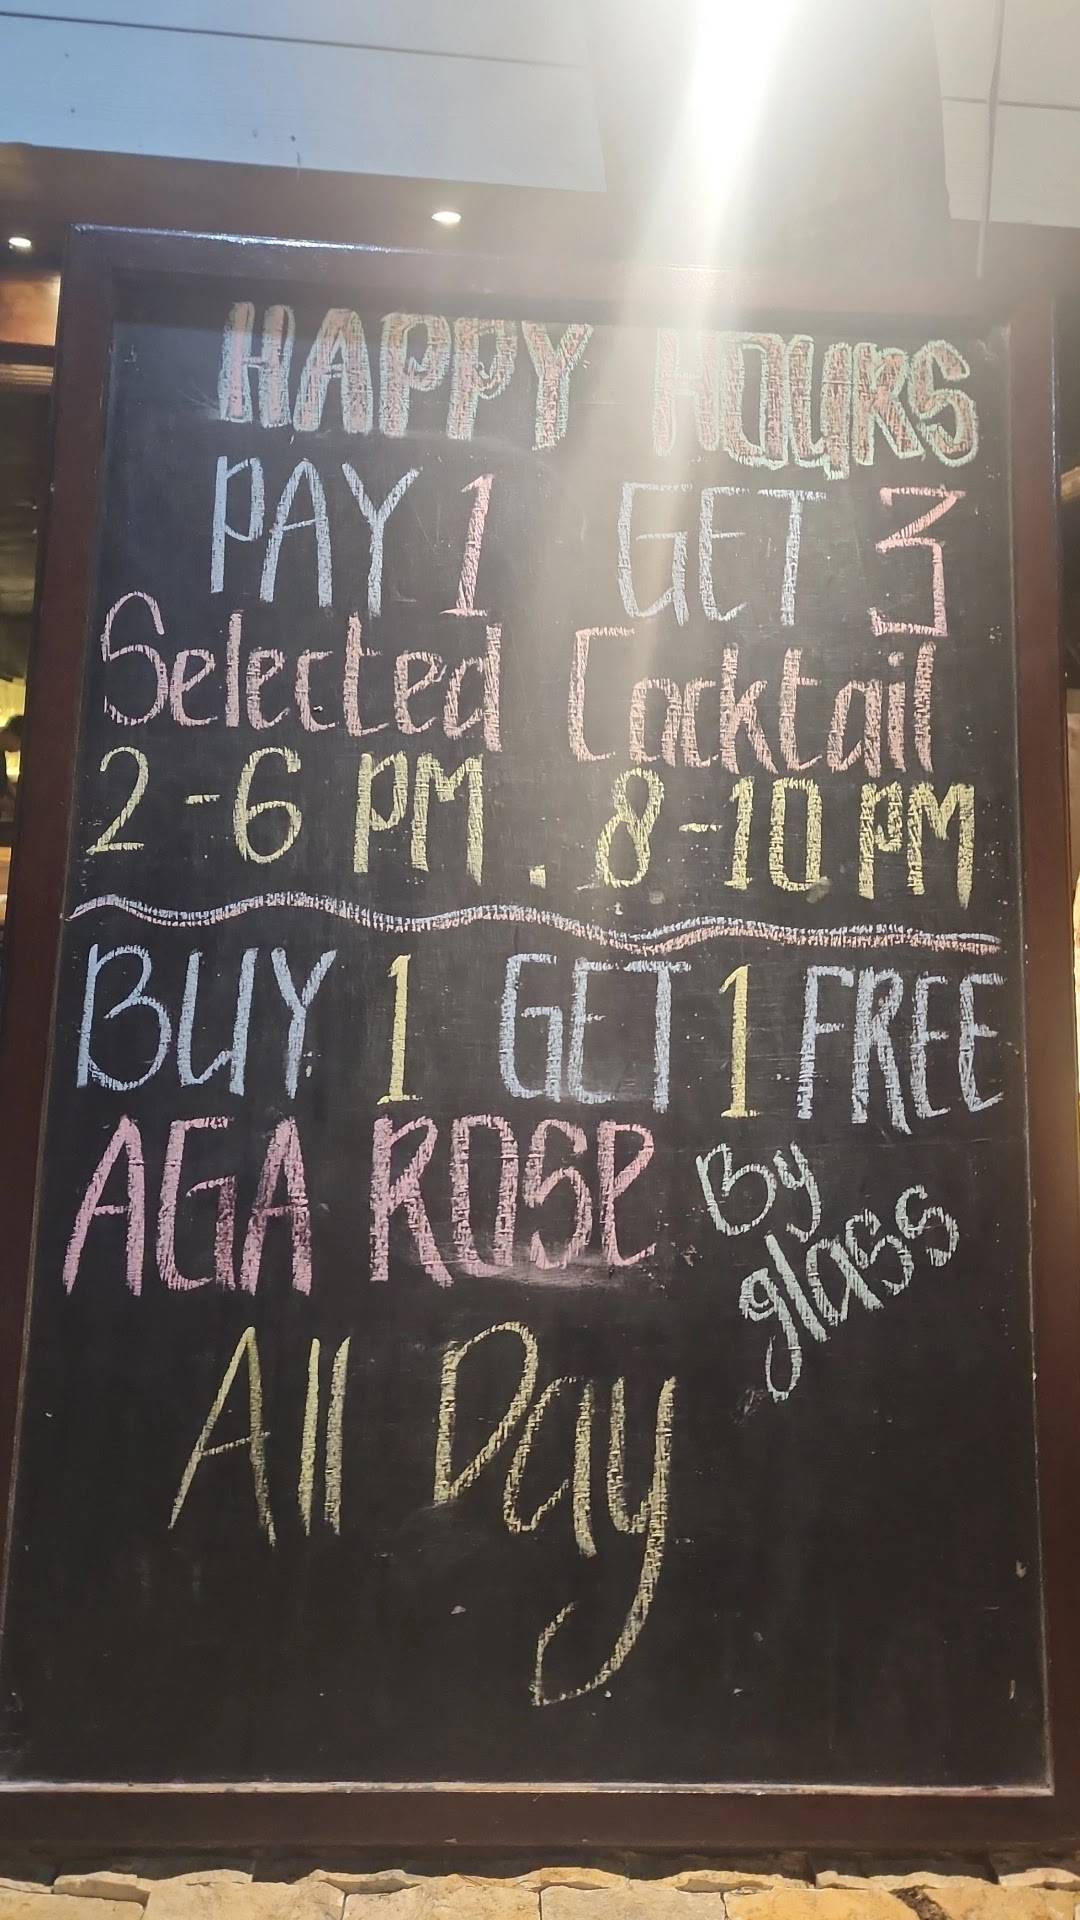 HAPPY HOURS
PAY 1 GET 3
Selected Cocktail
2-6 PM. 8-10 PM
BUY 1 GET 1 FREE
AGA ROSE By
glass
All Day